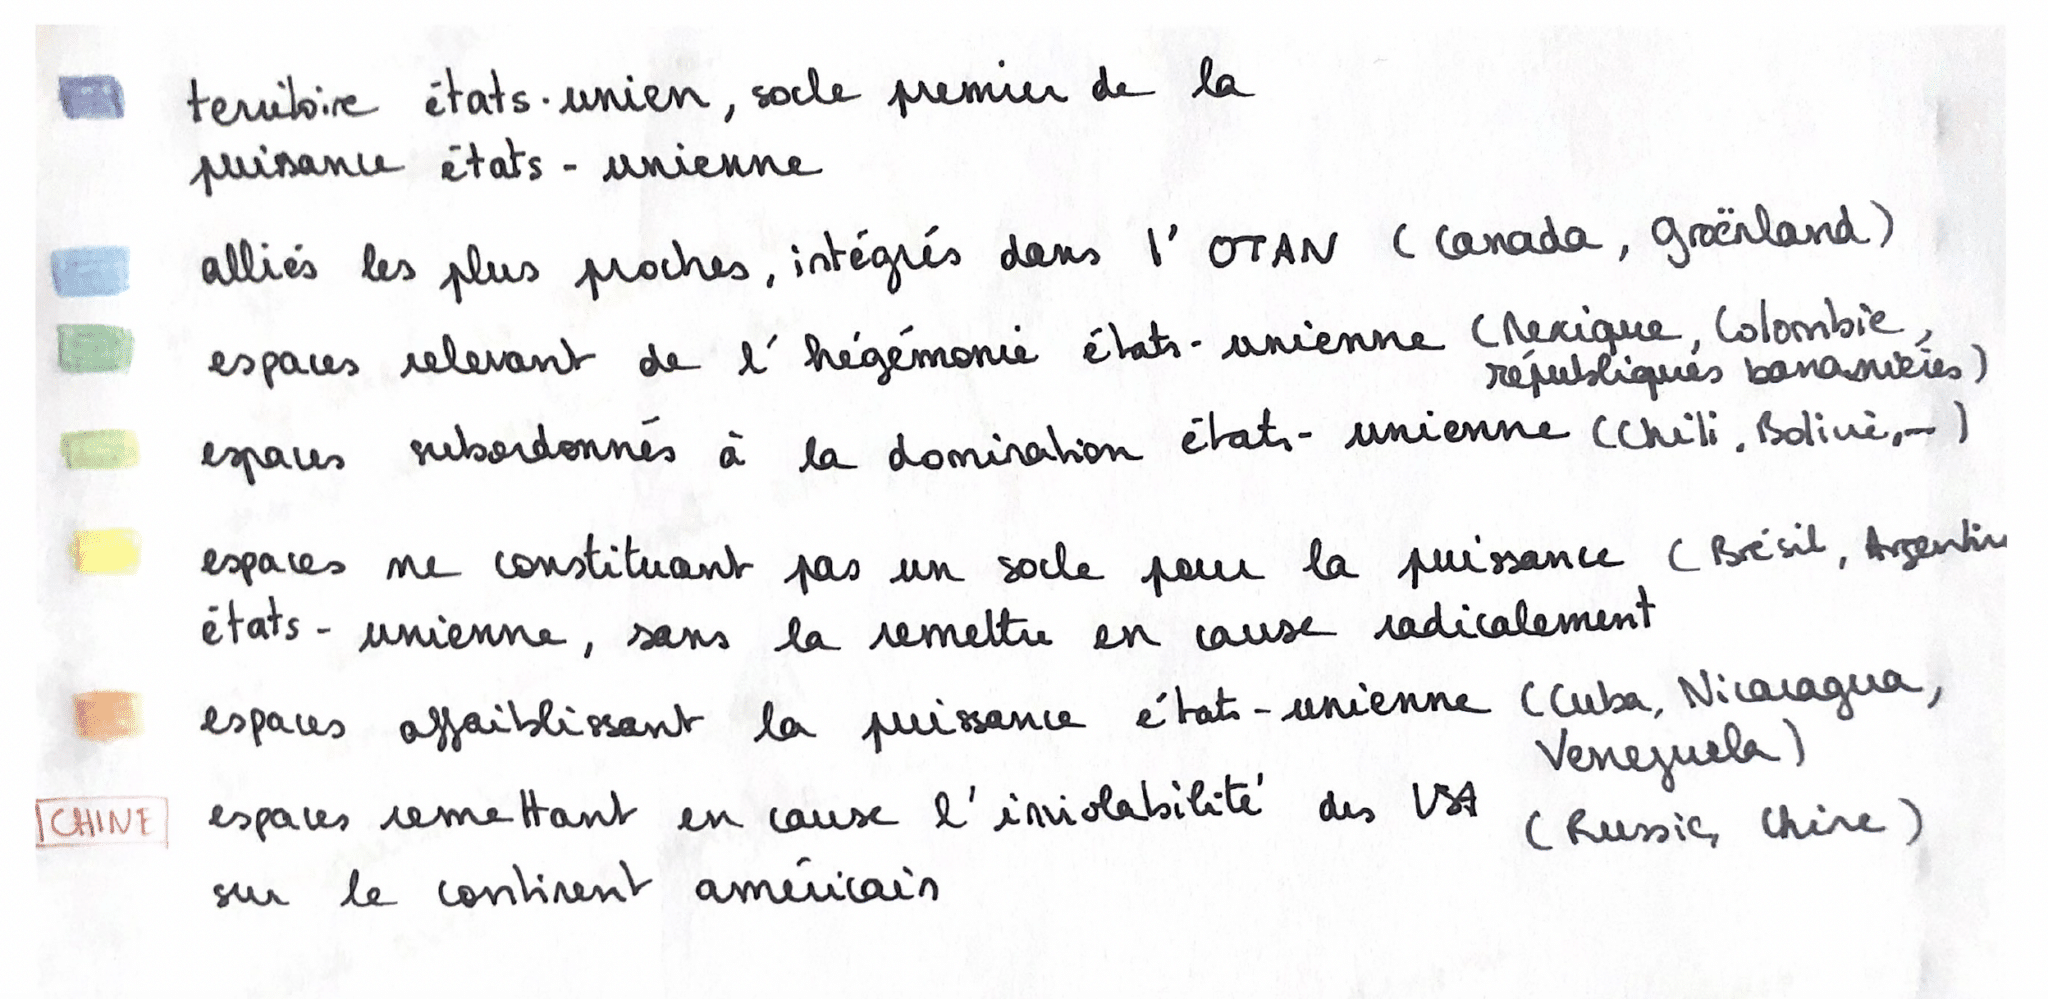 territoire états-unien, socle premier de la
puissance états-unienne
alliés les plus proches, intégrés dans l'OTAN (Canada, Groënland)
espaces relevant de l'hégémonie états-unienne (Mexique, Colombie,
républiques bananières)
espaces subordonnés à la domination états-unienne (Chili, Bolivie, ...)
espaces ne constituant pas un socle pour la puissance (Brésil, Argentin
états-unienne, sans la remettre en cause radicalement
espaces affaiblissant la puissance états-unienne (Cuba, Nicaragua,
Venezuela)
CHINE espaces remettant en cause l'inviolabilité des USA (Russie, Chine)
sur le continent américain